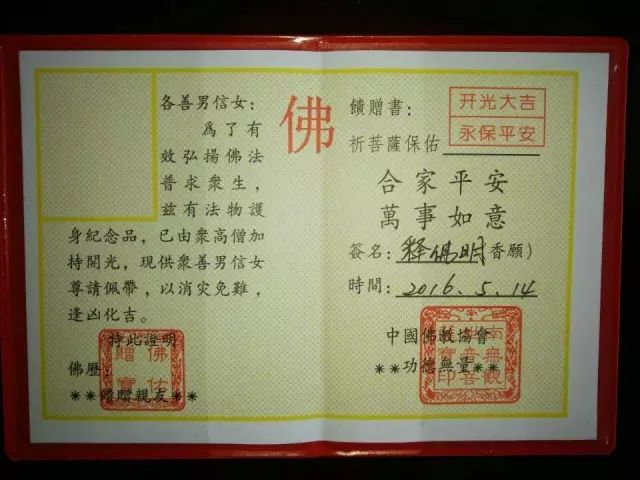 各善男信女：
爲了有
效弘揚佛法
普求衆生，
兹有法物護
身紀念品，已由衆高僧加
持開光，現供衆善男信女
尊請佩帶，以消灾免難，
逢凶化吉。
特此證明
佛歷：
**饋贈親友**
佛佑
贈寶
佛
饋贈書：
开光大吉
永保平安
祈菩薩保佑
合家平安
萬事如意
簽名：释佛明(香願)
時間：2016.5.14
中國佛教協會
**功德無量**
南無觀